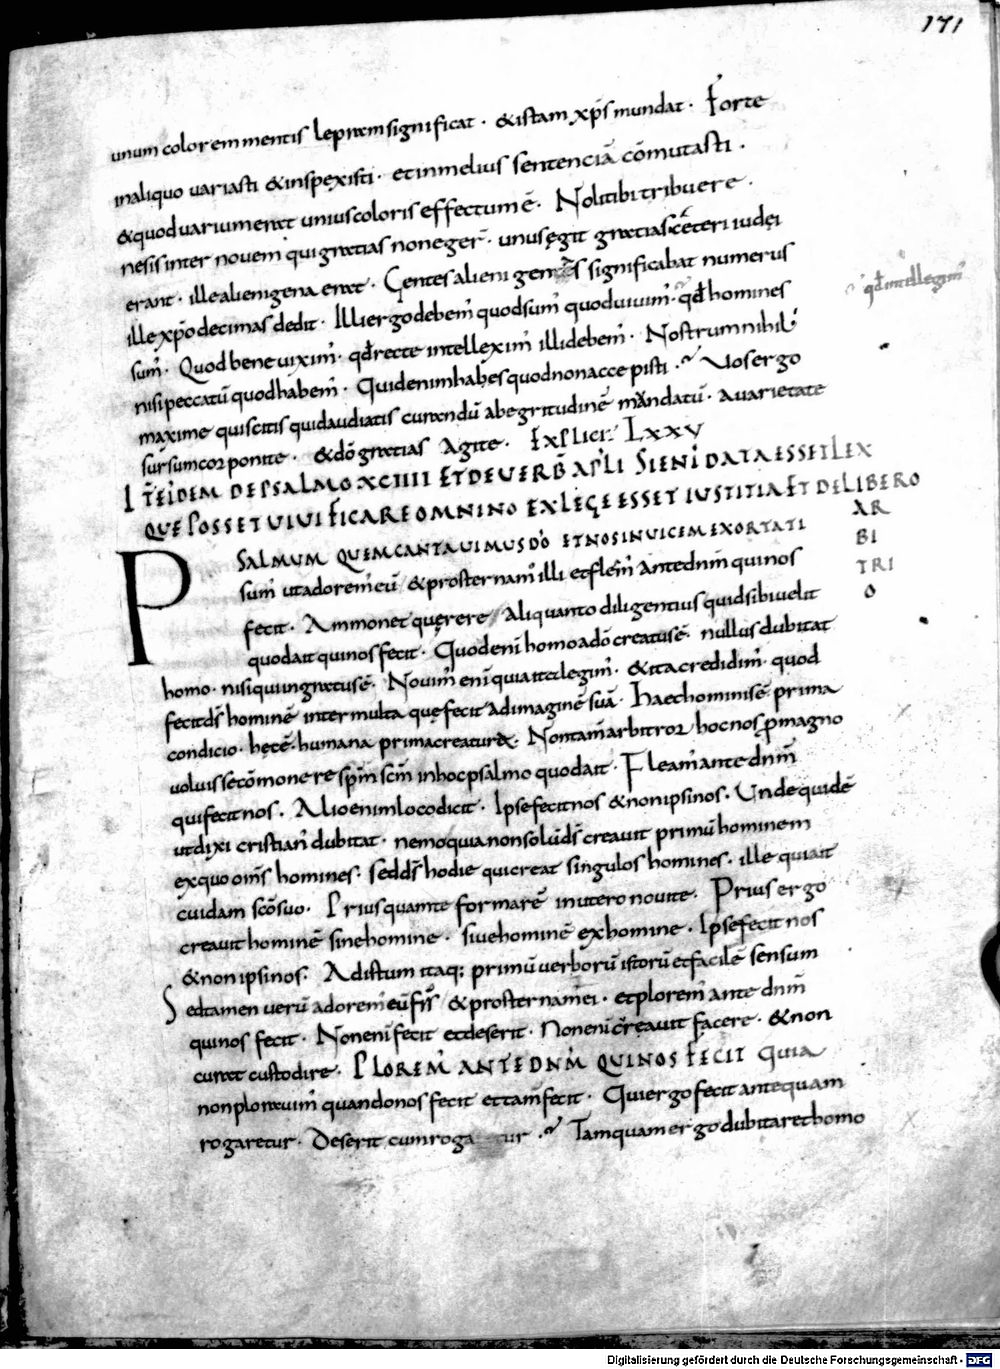 171
unum colorem mentis lepram significat · & istam xp̄s mundat · Forte
in aliquo variasti & inspexisti · et in melius sententiā cōmutasti ·
& quod varium erat unius coloris effectum ē · Noli tibi tribuere ·
ne sis inter novem qui gratias non eger̄ · unus ęgit gratias cēteri iudęi
erant · ille alienigena erat · Gentes alieni gentis significabat numerus
ille xp̄o decimas dedit · Illi ergo debem̄ quod sum̄ quod vivim̄ · qd̄ homines
qd̄ intellegim̄
sum̄ · Quod bene vixim̄ · qd̄ recte intellexim̄ illi debem̄ · Nostrum nihil
nisi peccatū quod habem̄ · Quid enim habes quod non accepisti · Vos ergo
maxime qui scitis quid audiatis curandū ab egritudinē mandatū · a varietate
sursum cor ponite · & dō gratias Agite · EXPLICIT LXXV
ITĒ EIDEM DE PSALMO XCIIII ET DE VERB̄ AP̄LI SI ENĪ DATA ESSET LEX
QUE POSSET VIVIFICARE OMNINO EX LEGE ESSET IUSTITIA ET DE LIBERO
AR
BI
TRI
O
PSALMUM QUEM CANTAVIMUS DŌ ET NOS INVICEM EXORTATI
sum̄ ut adorem̄ eū & prosternam̄ illi et flem̄ ante dnm̄ qui nos
fecit · Ammonet quęrere aliquanto diligentius quid sibi velit
quod ait qui nos fecit · Quod enī homo a dō creatus ē · nullus dubitat
homo · nisi qui ingratus ē · Novim̄ enī quia ita legim̄ · & ita credidim̄ · quod
fecit ds̄ hominē inter multa quę fecit ad imaginē suā · Haec hominis ē prima
condicio · hęc ē · humana prima creatura · Non tam̄ arbitror hoc nos p̄ magno
voluisse cōmonere sp̄m sc̄m in hoc psalmo quod ait · Fleam̄ ante dnm̄
qui fecit nos · Alio enim loco dicit · Ipse fecit nos & non ipsi nos · Unde quidē
ut dixi cristian̄ dubitat · nemo quia non solū ds̄ creavit primū hominem
ex quo om̄s homines · sed ds̄ hodie qui creat singulos homines · ille qui ait
cuidam sc̄o suo · Prius quam te formarē in utero novi te · Prius ergo
creavit hominē sine homine · sive hominē ex homine · Ipse fecit nos
& non ipsi nos · Ad istum itaq; primū verborū istorū et facilē sensum
Sed tamen verū adorem̄ eū frs̄ & prosternam̄ ei · et plorem̄ ante dnm̄
qui nos fecit · Non enī fecit et deserit · Non enī creavit facere · & non
curat custodire · PLOREM̄ ANTE DNM̄ QUI NOS FECIT quia
non ploravim̄ quando nos fecit et tam̄ fecit · Qui ergo fecit antequam
rogaretur · Deserit cum roga tur · Tamquam ergo dubitaret homo
Digitalisierung gefördert durch die Deutsche Forschungsgemeinschaft - DFG